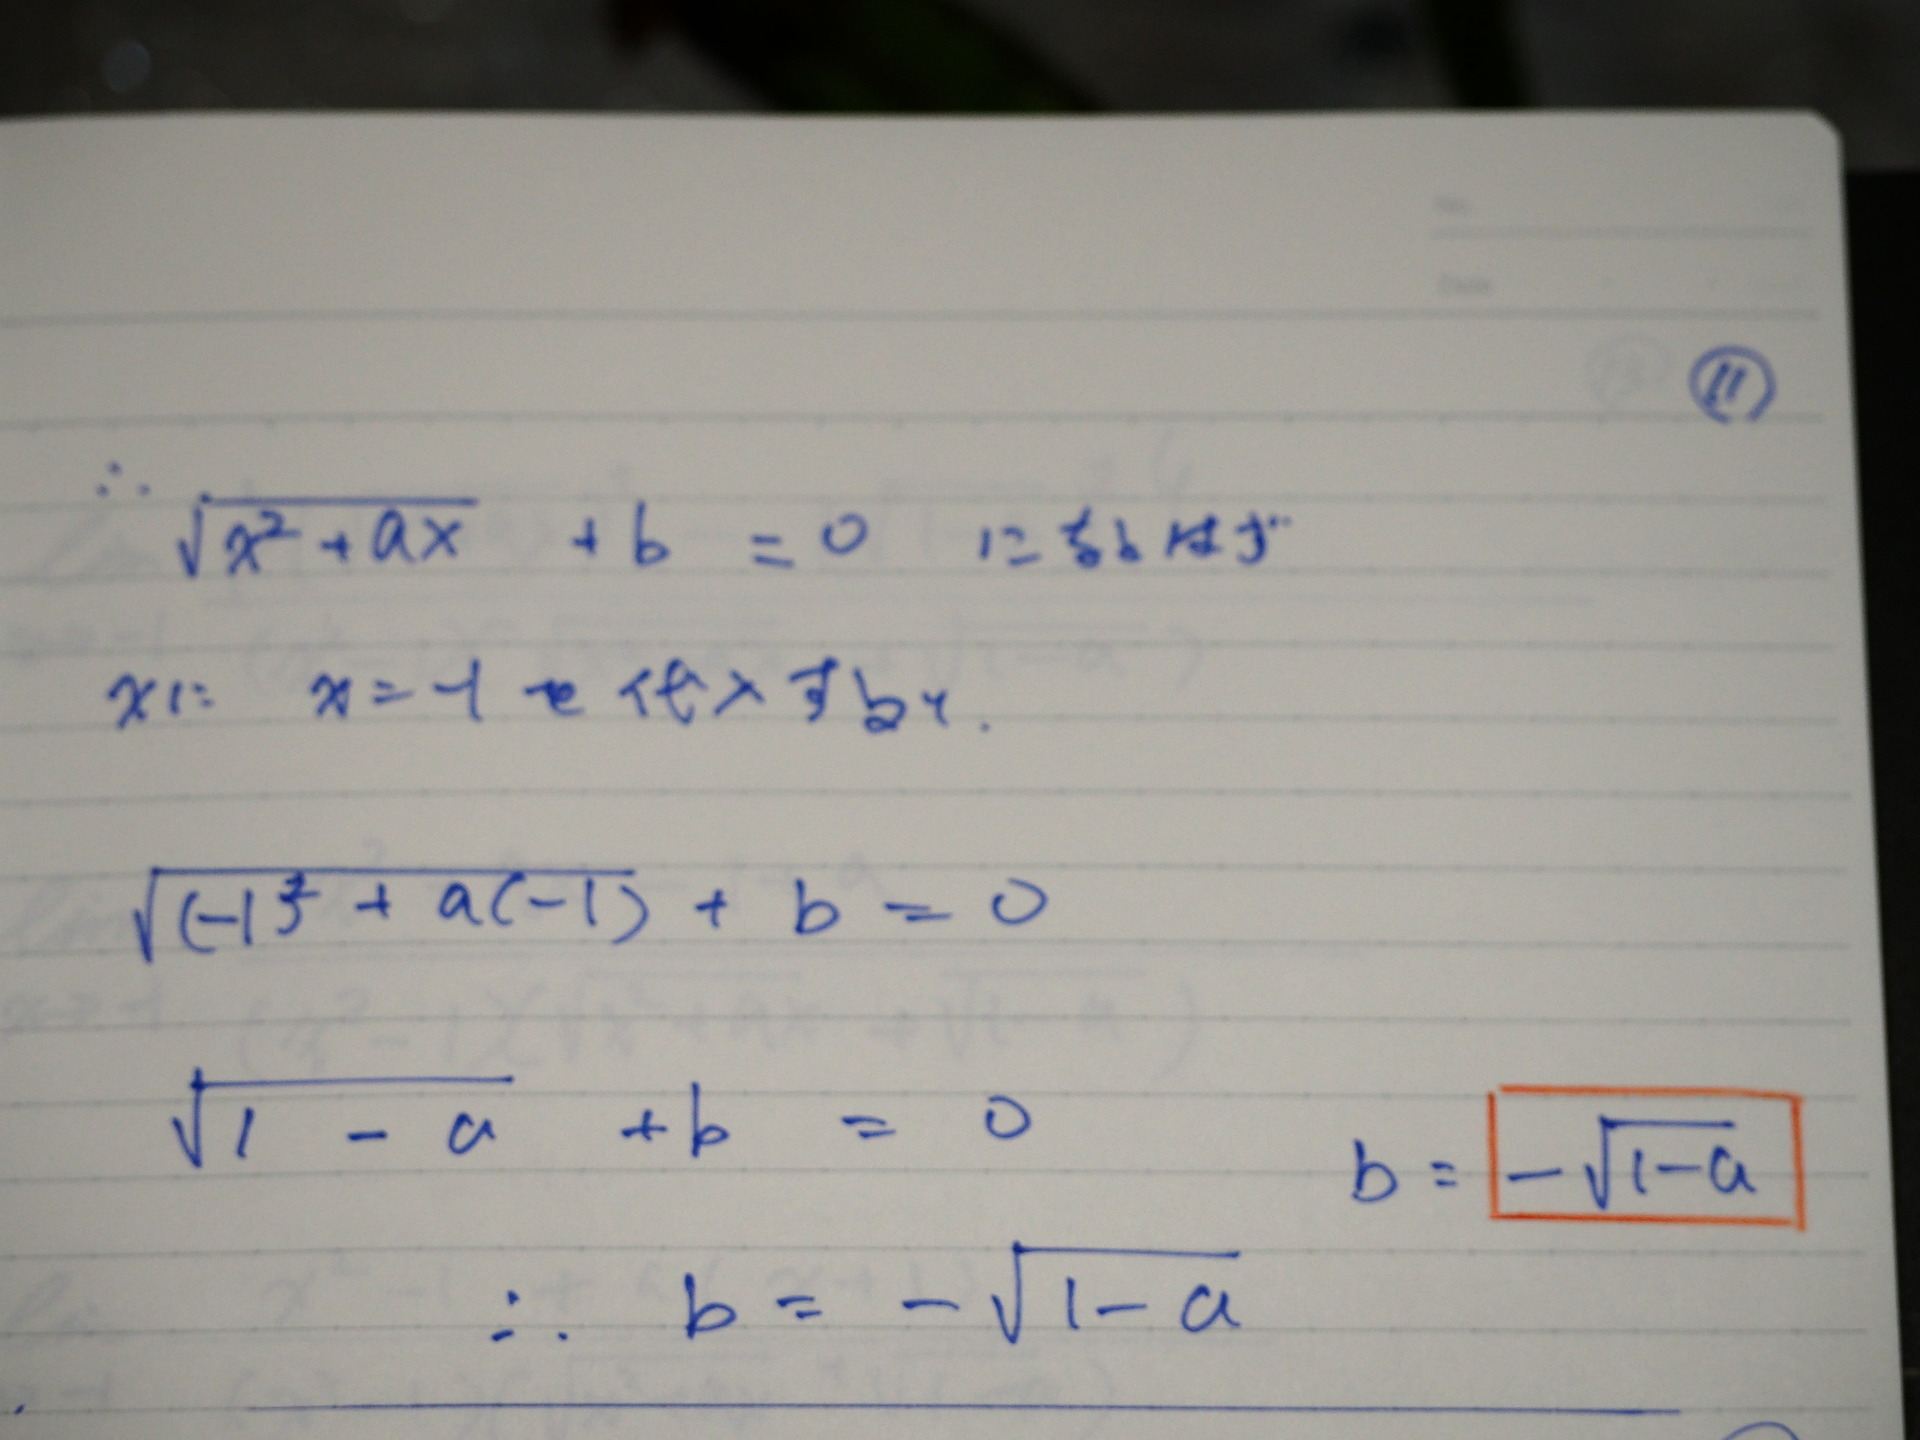 No.
Date
⑪
∴ √(x²+ax) + b = 0 になるはず
xに x=-1を代入すると.
√((-1)² + a(-1)) + b = 0
√(1 - a) + b = 0
b = -√(1-a)
∴ b = -√(1-a)